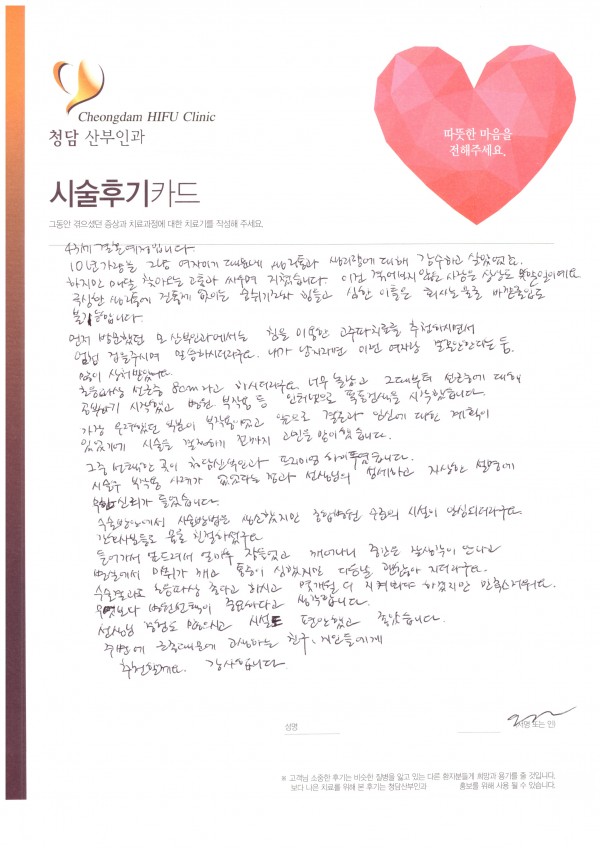 Cheongdam HIFU Clinic
청담 산부인과
따뜻한 마음을
전해주세요.
시술후기카드
그동안 겪으셨던 증상과 치료과정에 대한 치료기를 작성해 주세요.
43세 결혼예정입니다
10년가량을 그냥 여자이기 때문에 생리통과 생리량에 대해 감수하고 살았었고요.
하지만 매달 찾아오는 고통과 싸우며 지쳤습니다. 이건 겪어보지 않는 사람은 상상도 못할일이예요
극심한 생리통에 진통제 없이는 힘들고 심한 이틀은 회사는 물론 바깥출입도
불가능입니다.
먼저 방문했던 모 산부인과에서는 침을 이용한 고주파치료를 추천하시면서
엄청 겁을주시며 말씀하시더라구요. 내가 남자라면 이런 여자랑 결혼안한다는 등.
많이 상처받았습니다.
초음파상 선근증 8cm라고 하시더라구요. 너무 놀랐고 그때부터 선근증에 대해
공부하기 시작했고 병원, 부작용 등 인터넷으로 폭풍검색을 시작했습니다.
가장 우려했던 부분이 부작용이었고 앞으로 결혼과 임신에 대한 계획이
있었기에 시술을 결정하기 전까지 고민을 많이 했습니다.
그중 선택한 곳이 청담산부인과 프리미엄 하이푸였습니다.
시술후 부작용 사례가 없으시다는 점과 선생님의 섬세하고 자상한 설명에
신뢰가 들었습니다.
수술방에서 사용방법은 생소했지만 종합병원 수준의 시설이 안심되더라구요.
간호사분들도 모두 친절하셨구요.
들어가서 엎드려서 얼마후 잠들었고 깨어나니 중간은 생각이 안나고
병실에서 마취가 깨고 통증이 심했지만 다음날 괜찮아 지더라구요.
수술결과도 초음파상 좋다고 하시고 몇개월 더 지켜봐야 하겠지만 만족스러워요.
무엇보다 병원선택이 중요하다고 생각합니다.
선생님 경험도 많으시고 시설도 편안했고 좋았습니다.
주변에 근종때문에 고생하는 친구, 지인들에게
추천할께요. 감사합니다.
성명
서명 또는 인
※ 고객님 소중한 후기는 비슷한 질병을 앓고 있는 다른 환자분들께 희망과 용기를 줄 것입니다.
보다 나은 치료를 위해 본 후기는 청담산부인과 홍보를 위해 사용 될 수 있습니다.